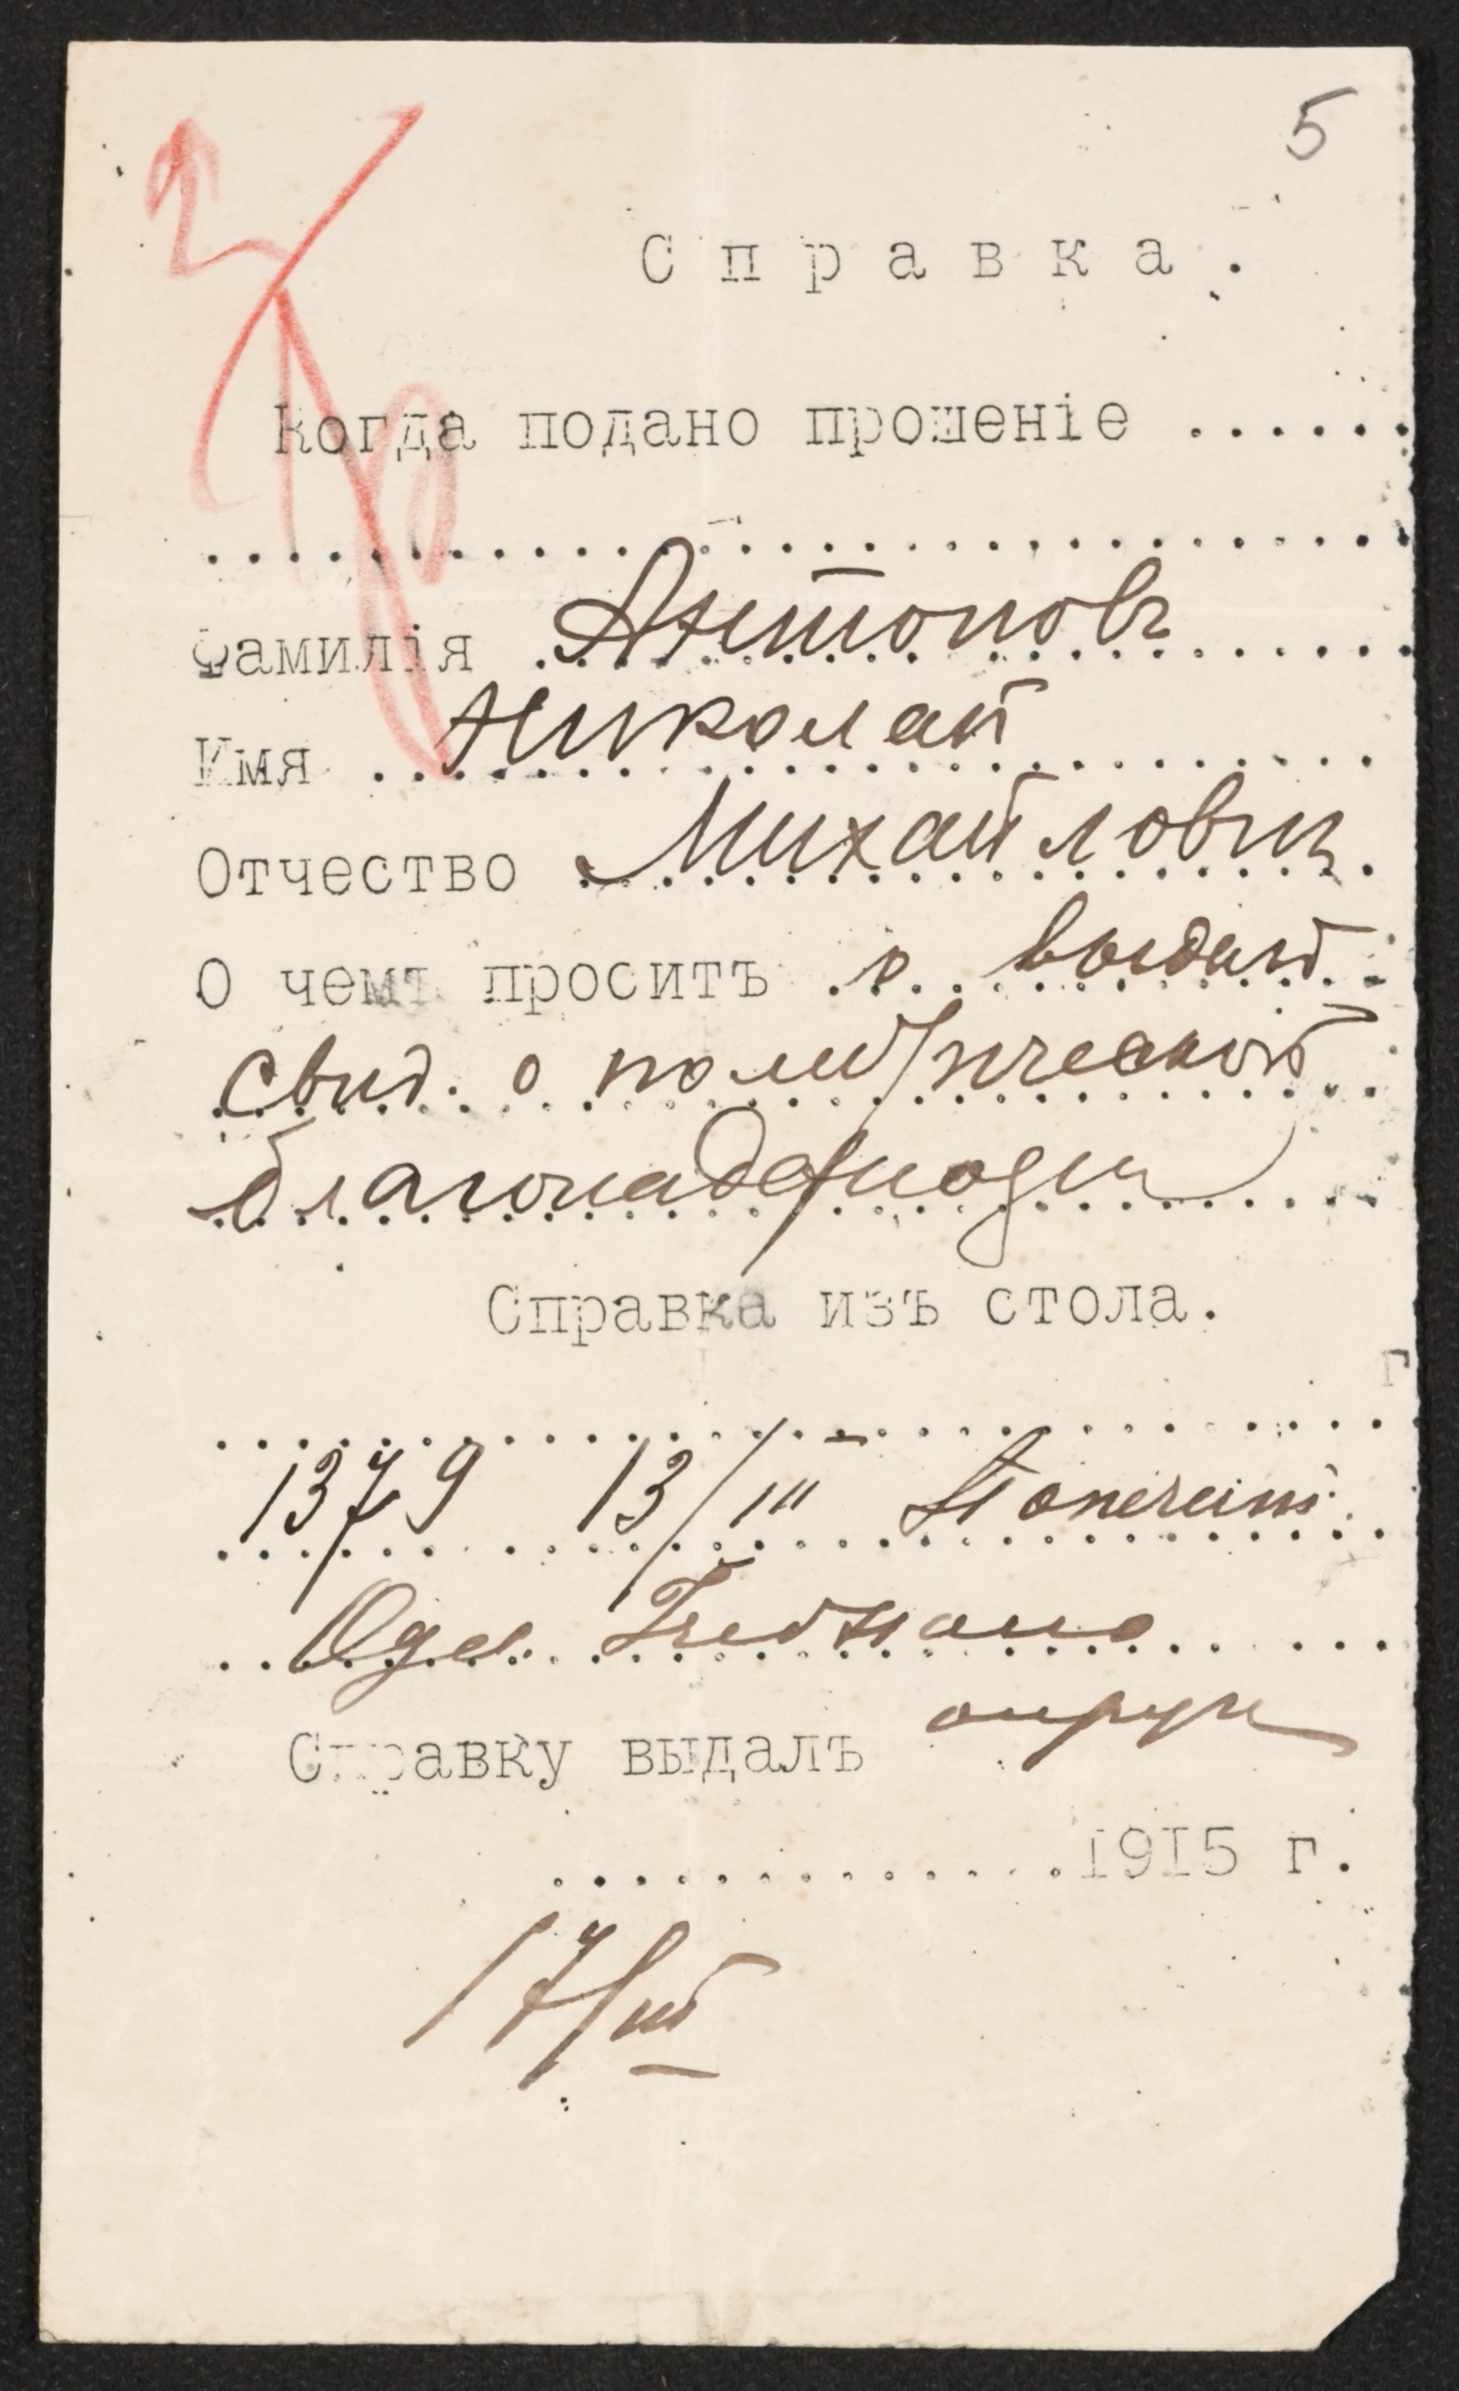 5
Справка.
Когда подано прошеніе ......
..............................
Фамилія Антоновъ
Имя Николай
Отчество Михайлович
О чемъ проситъ о выдачѣ
свид. о политической
благонадежности
Справка изъ стола.
1379 13/III Попечит.
Одес. Учебнаго
округа
Справку выдалъ
............. 1915 г.
17/III